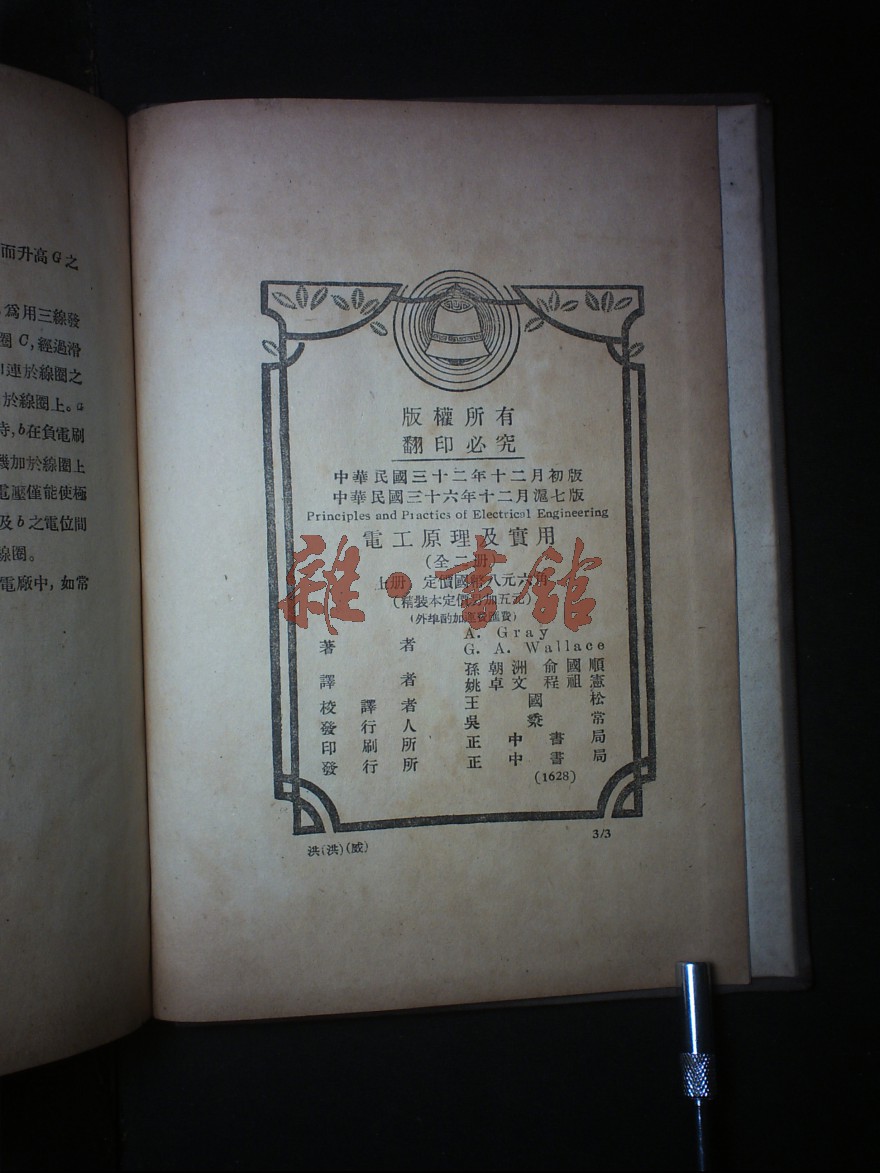 而升高G之
爲用三線發
圈C,經過滑
連於線圈之
於線圈上。a
時,b在負電刷
機加於線圈上
電壓僅能使極
及b之電位間
線圈。
電廠中,如常
版權所有
翻印必究
中華民國三十二年十二月初版
中華民國三十六年十二月滬七版
Principles and Practics of Electrical Engineering
電工原理及實用
(全二册)
上册 定價國幣八元六角
(精裝本定價另加五元)
(外埠酌加運費匯費)
雜·書館
著者 A. Gray
G. A. Wallace
譯者 孫朝洲 俞國順
姚卓文 程祖憲
校譯者 王國松
發行人 吳秉常
印刷所 正中書局
發行所 正中書局
(1628)
洪(洪)(威) 3/3